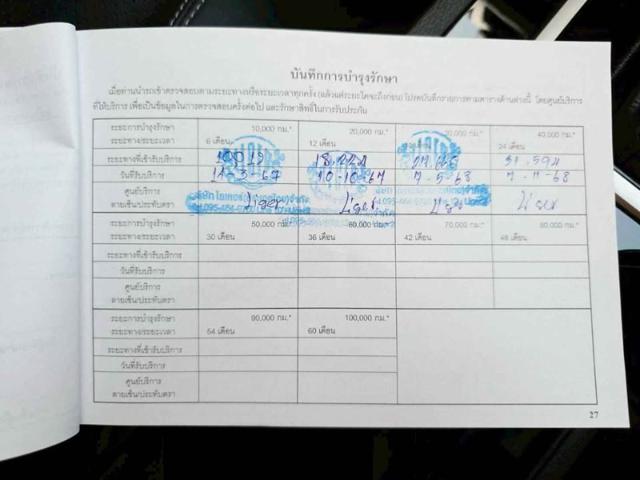 บันทึกการบำรุงรักษา
เมื่อท่านนำรถเข้าตรวจสอบตามระยะทางหรือระยะเวลาทุกครั้ง (แล้วแต่ระยะใดจะถึงก่อน) โปรดบันทึกรายการตามตารางด้านล่างนี้ โดยศูนย์บริการ
ที่ให้บริการ เพื่อเป็นข้อมูลในการตรวจสอบครั้งต่อไป และรักษาสิทธิ์ในการรับประกัน
ระยะการบำรุงรักษา 10,000 กม.* 20,000 กม.* 30,000 กม.* 40,000 กม.*
ระยะทาง/ระยะเวลา 6 เดือน 12 เดือน 24 เดือน
ระยะทางที่เข้ารับบริการ 31,594
วันที่รับบริการ 11-3-67 10-10-67 7-5-68 7-11-68
ศูนย์บริการ
ลายเซ็น/ประทับตรา Liger Liger Liger
ระยะการบำรุงรักษา 50,000 กม.* 60,000 กม.* 70,000 กม.* 80,000 กม.*
ระยะทาง/ระยะเวลา 30 เดือน 36 เดือน 42 เดือน 48 เดือน
ระยะทางที่เข้ารับบริการ
วันที่รับบริการ
ศูนย์บริการ
ลายเซ็น/ประทับตรา
ระยะการบำรุงรักษา 90,000 กม.* 100,000 กม.*
ระยะทาง/ระยะเวลา 54 เดือน 60 เดือน
ระยะทางที่เข้ารับบริการ
วันที่รับบริการ
ศูนย์บริการ
ลายเซ็น/ประทับตรา
27